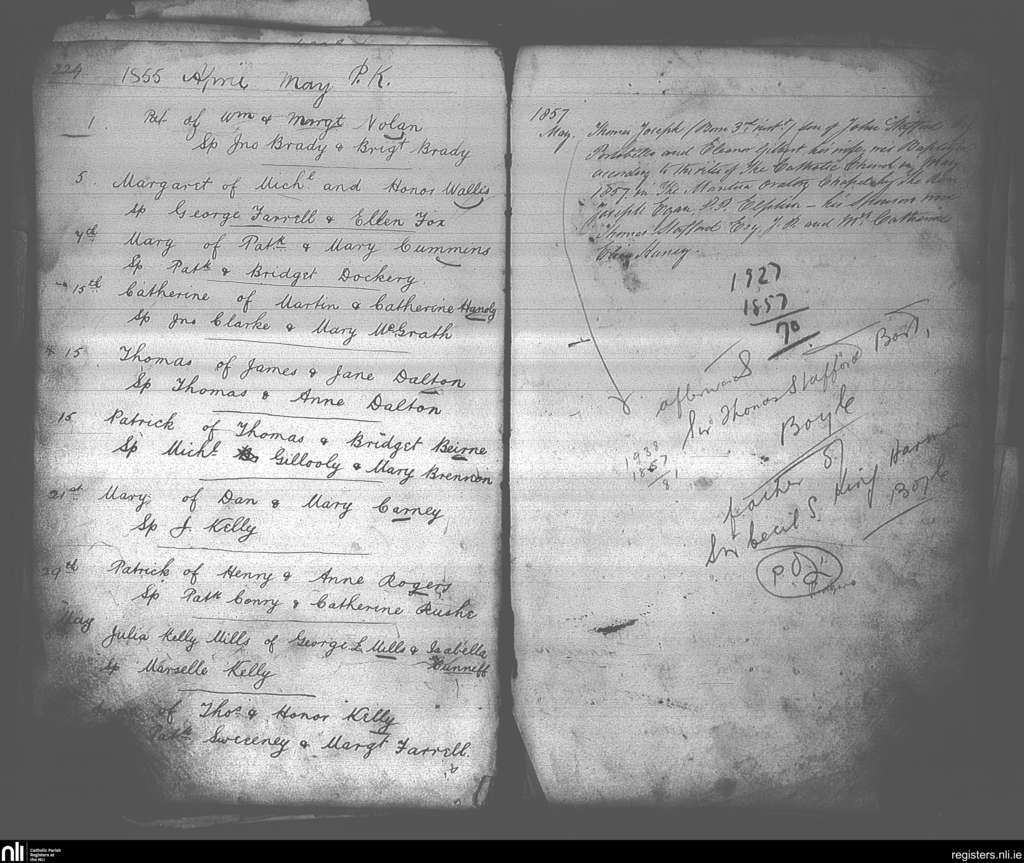 224 1855 April May P.K.
1 Pat of Wm & Margt Nolan
Sp Jno Brady & Brigt Brady
5 Margaret of Michl and Honor Wallis
Sp George Farrell & Ellen Fox
7th Mary of Patk & Mary Cummins
Sp Patk & Bridget Dockery
15th Catherine of Martin & Catherine Hanly
Sp Jno Clarke & Mary McGrath
15 Thomas of James & Jane Dalton
Sp Thomas & Anne Dalton
15 Patrick of Thomas & Bridget Beirne
Sp Michl Gillooly & Mary Brennon
21st Mary of Dan & Mary Carney
Sp J. Kelly
29th Patrick of Henry & Anne Rogers
Sp Patk Conry & Catherine Rushe
May Julia Kelly Mills of George L Mills & Isabella
Cunneff
Sp Marselle Kelly
of Thos & Honor Kelly
Patk Sweeney & Margt Farrell.
1857
May. Thomas Joseph (Born 3rd inst.) son of John Stafford
Portobello and Eleanor his wife, was Baptised
according to the rites of The Catholic Church in May
1857 in The Oratory Chapel by The
Joseph Egan, P.P. Elphin - his Sponsors were
Thomas Stafford Esq J.P. and Mrs Catherine
1927
1857
70
afterwards
Sir Thomas Stafford Bart,
Boyle
1938
1857
81
father of
Sir Cecil S. King Harman
Boyle